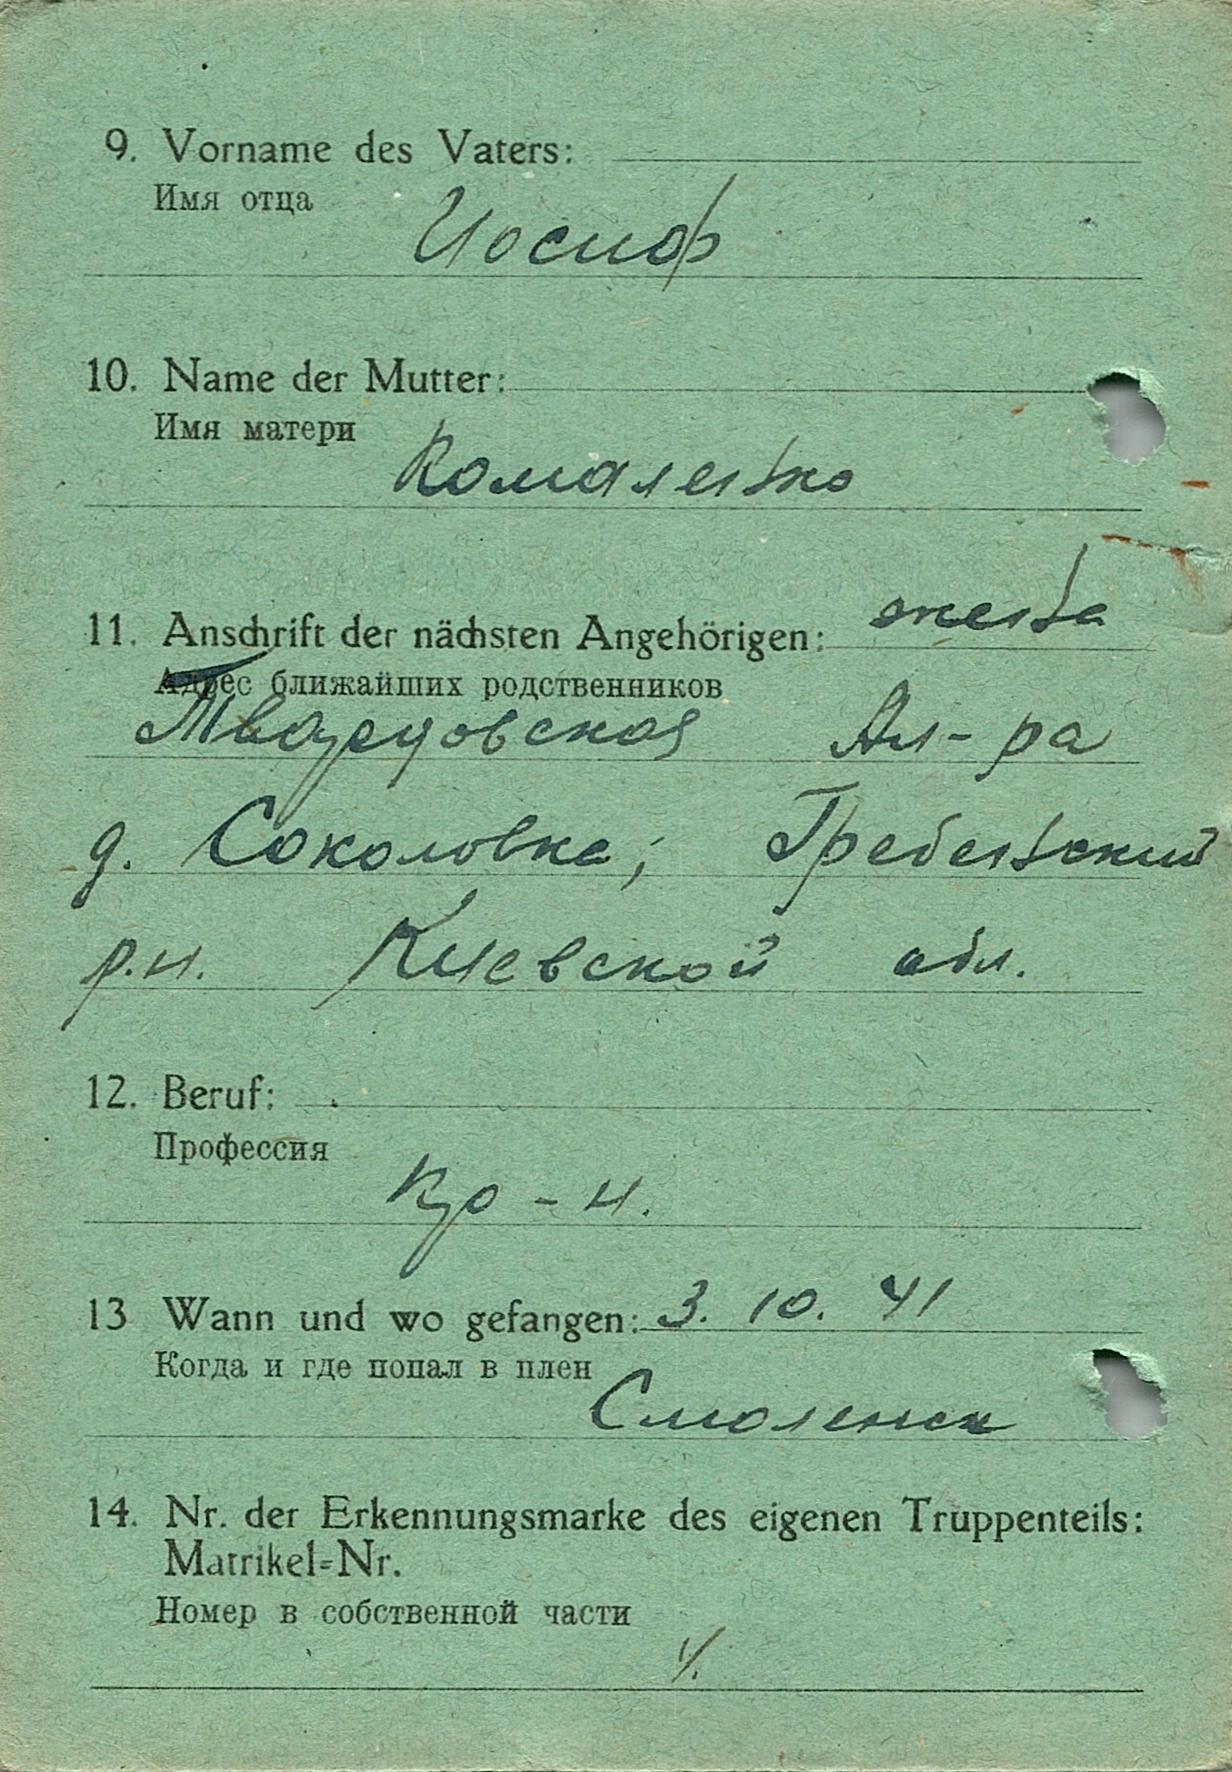 9. Vorname des Vaters:
Имя отца
Иосиф
10. Name der Mutter:
Имя матери
Коваленко
11. Anschrift der nächsten Angehörigen: жена
Адрес ближайших родственников
Твардовская Ал-ра
д. Соколовка, Гребенский
р.н. Киевской обл.
12. Beruf:
Профессия
Кр-н.
13 Wann und wo gefangen: 3. 10. 41
Когда и где попал в плен
Смоленск
14. Nr. der Erkennungsmarke des eigenen Truppenteils:
Matrikel-Nr.
Номер в собственной части